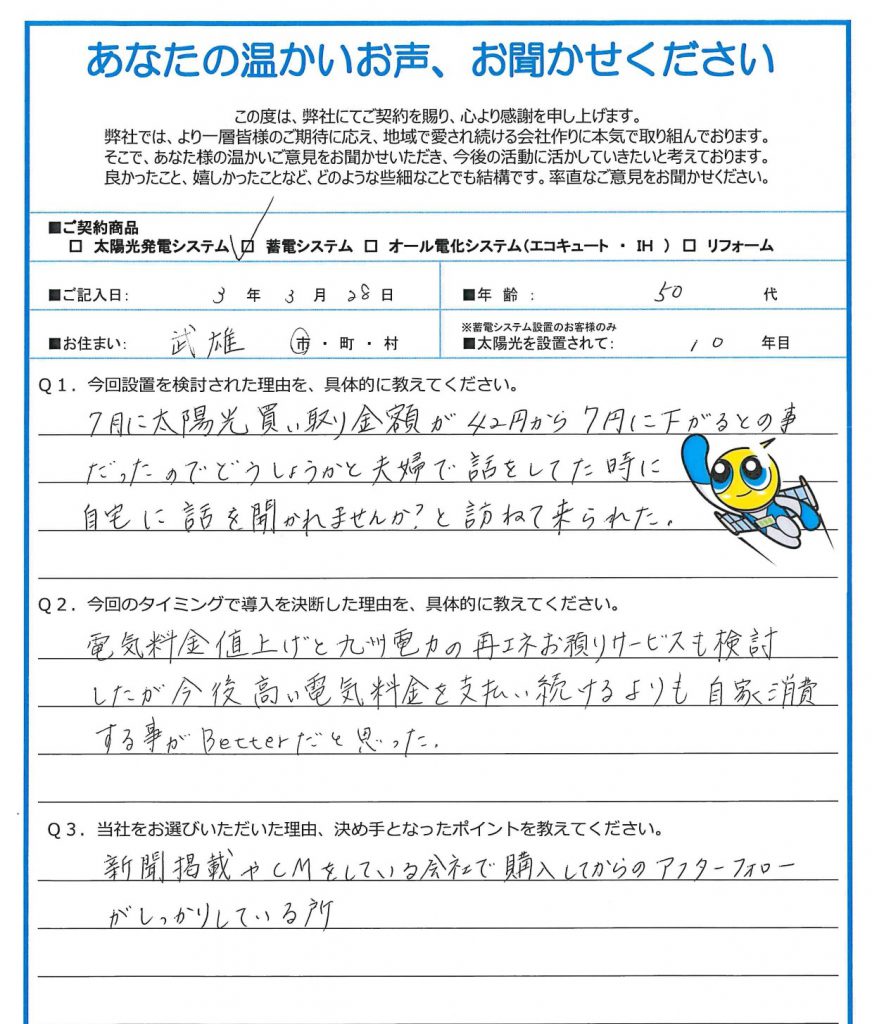 あなたの温かいお声、お聞かせください
この度は、弊社にてご契約を賜り、心より感謝を申し上げます。
弊社では、より一層皆様のご期待に応え、地域で愛され続ける会社作りに本気で取り組んでおります。
そこで、あなた様の温かいご意見をお聞かせいただき、今後の活動に活かしていきたいと考えております。
良かったこと、嬉しかったことなど、どのような些細なことでも結構です。率直なご意見をお聞かせください。
■ご契約商品
□ 太陽光発電システム □ 蓄電システム □ オール電化システム（エコキュート ・ IH ） □ リフォーム
■ご記入日： 3 年 3 月 28 日 ■年 齢 ： 50 代
※蓄電システム設置のお客様のみ
■お住まい： 武雄 市・町・村 ■太陽光を設置されて： 10 年目
Q１．今回設置を検討された理由を、具体的に教えてください。
7月に太陽光買い取り金額が42円から7円に下がるとの事
だったのでどうしようかと夫婦で話をしてた時に
自宅に話を聞かれませんか?と訪ねて来られた。
Q２．今回のタイミングで導入を決断した理由を、具体的に教えてください。
電気料金値上げと九州電力の再エネお預りサービスも検討
したが今後高い電気料金を支払い続けるよりも自家消費
する事がBetterだと思った。
Q３．当社をお選びいただいた理由、決め手となったポイントを教えてください。
新聞掲載やCMをしている会社で購入してからのアフターフォロー
がしっかりしている所